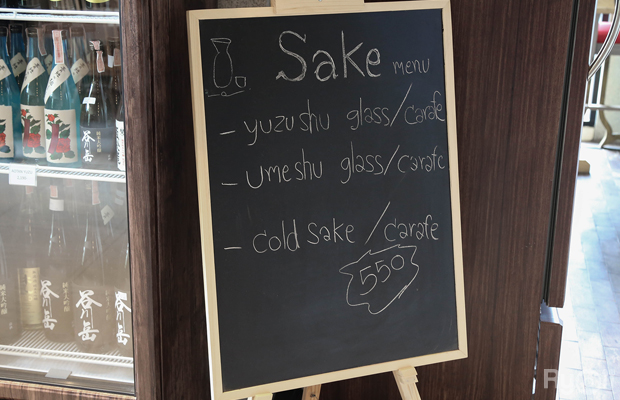 Sake menu
- yuzushu glass/carafe
- umeshu glass/carafe
- cold sake / carafe
550
谷川岳
谷川岳
谷川岳